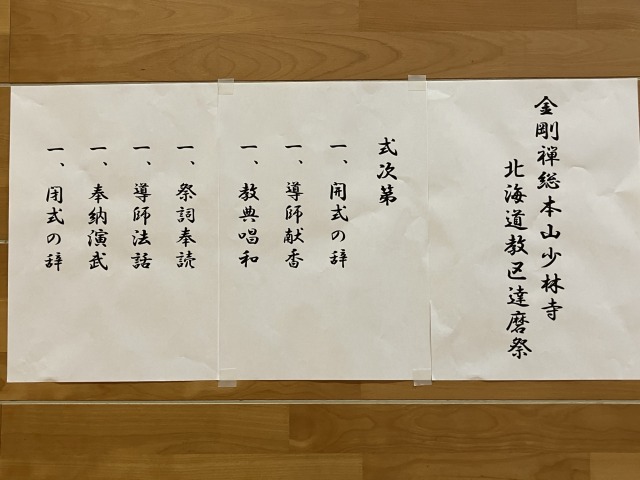 金剛禅総本山少林寺
北海道教区達磨祭
式次第
一、開式の辞
一、導師献香
一、教典唱和
一、祭詞奉読
一、導師法話
一、奉納演武
一、閉式の辞